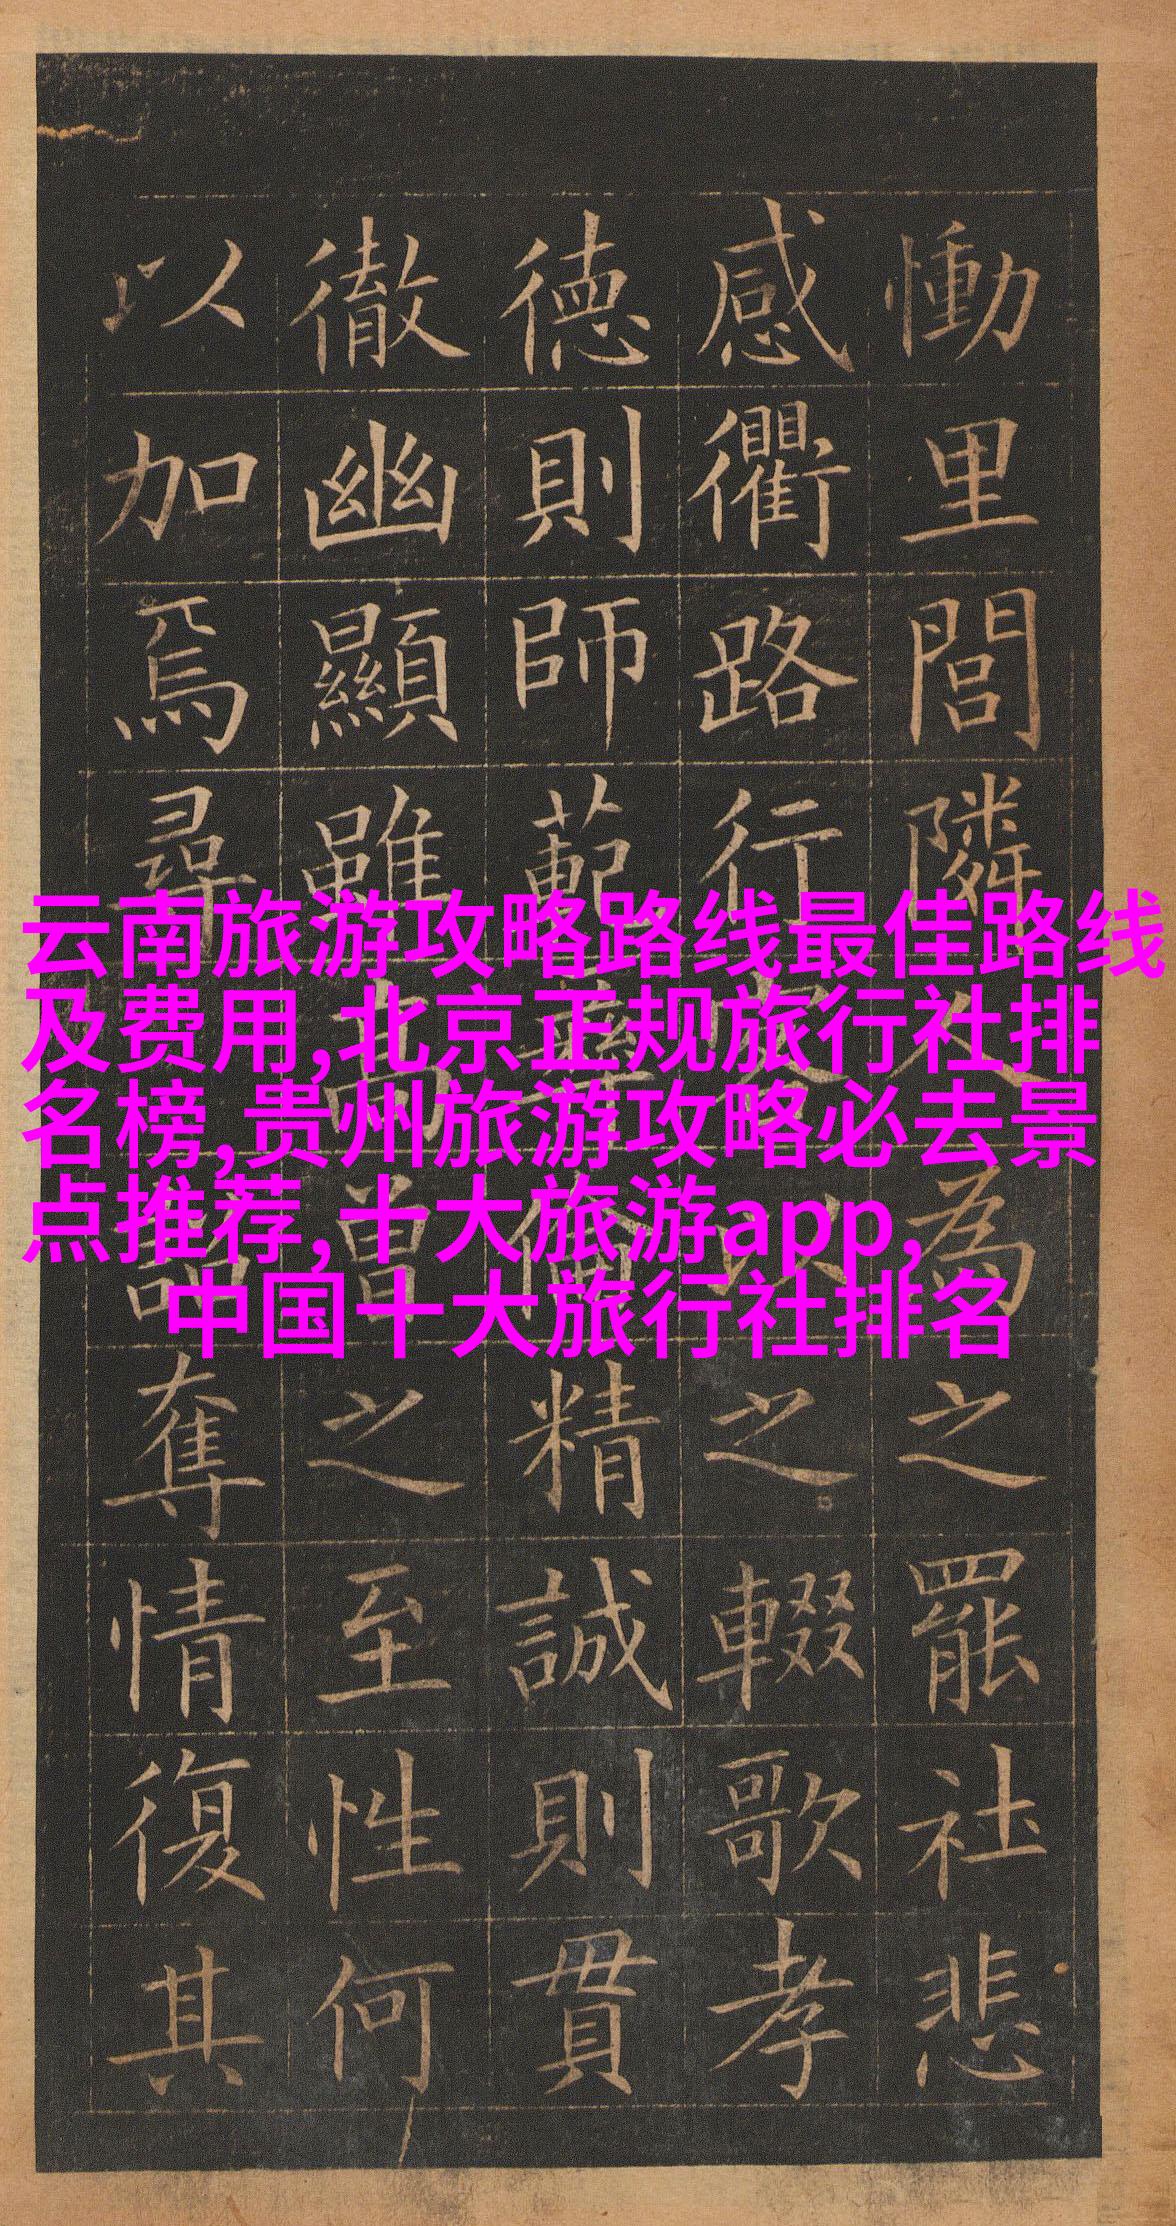 慟里閭隣人為之罷社悲
感衢路行客以之輟歌孝
德則師範彝倫精誠則貫
徹幽顯雖高曾之至性何
以加焉尋詔奪情復其
云南旅游攻略路线最佳路线
及费用,北京正规旅行社排
名榜,贵州旅游攻略必去景
点推荐,十大旅游app,
中国十大旅行社排名